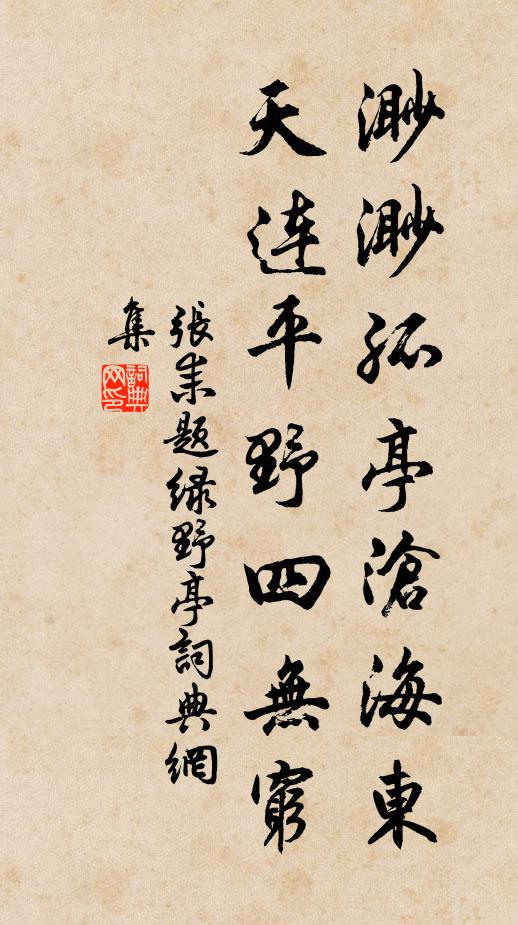 渺渺孤亭滄海東
天連平野四無窮
張耒題緑野亭詞典網
集
詞典
网印